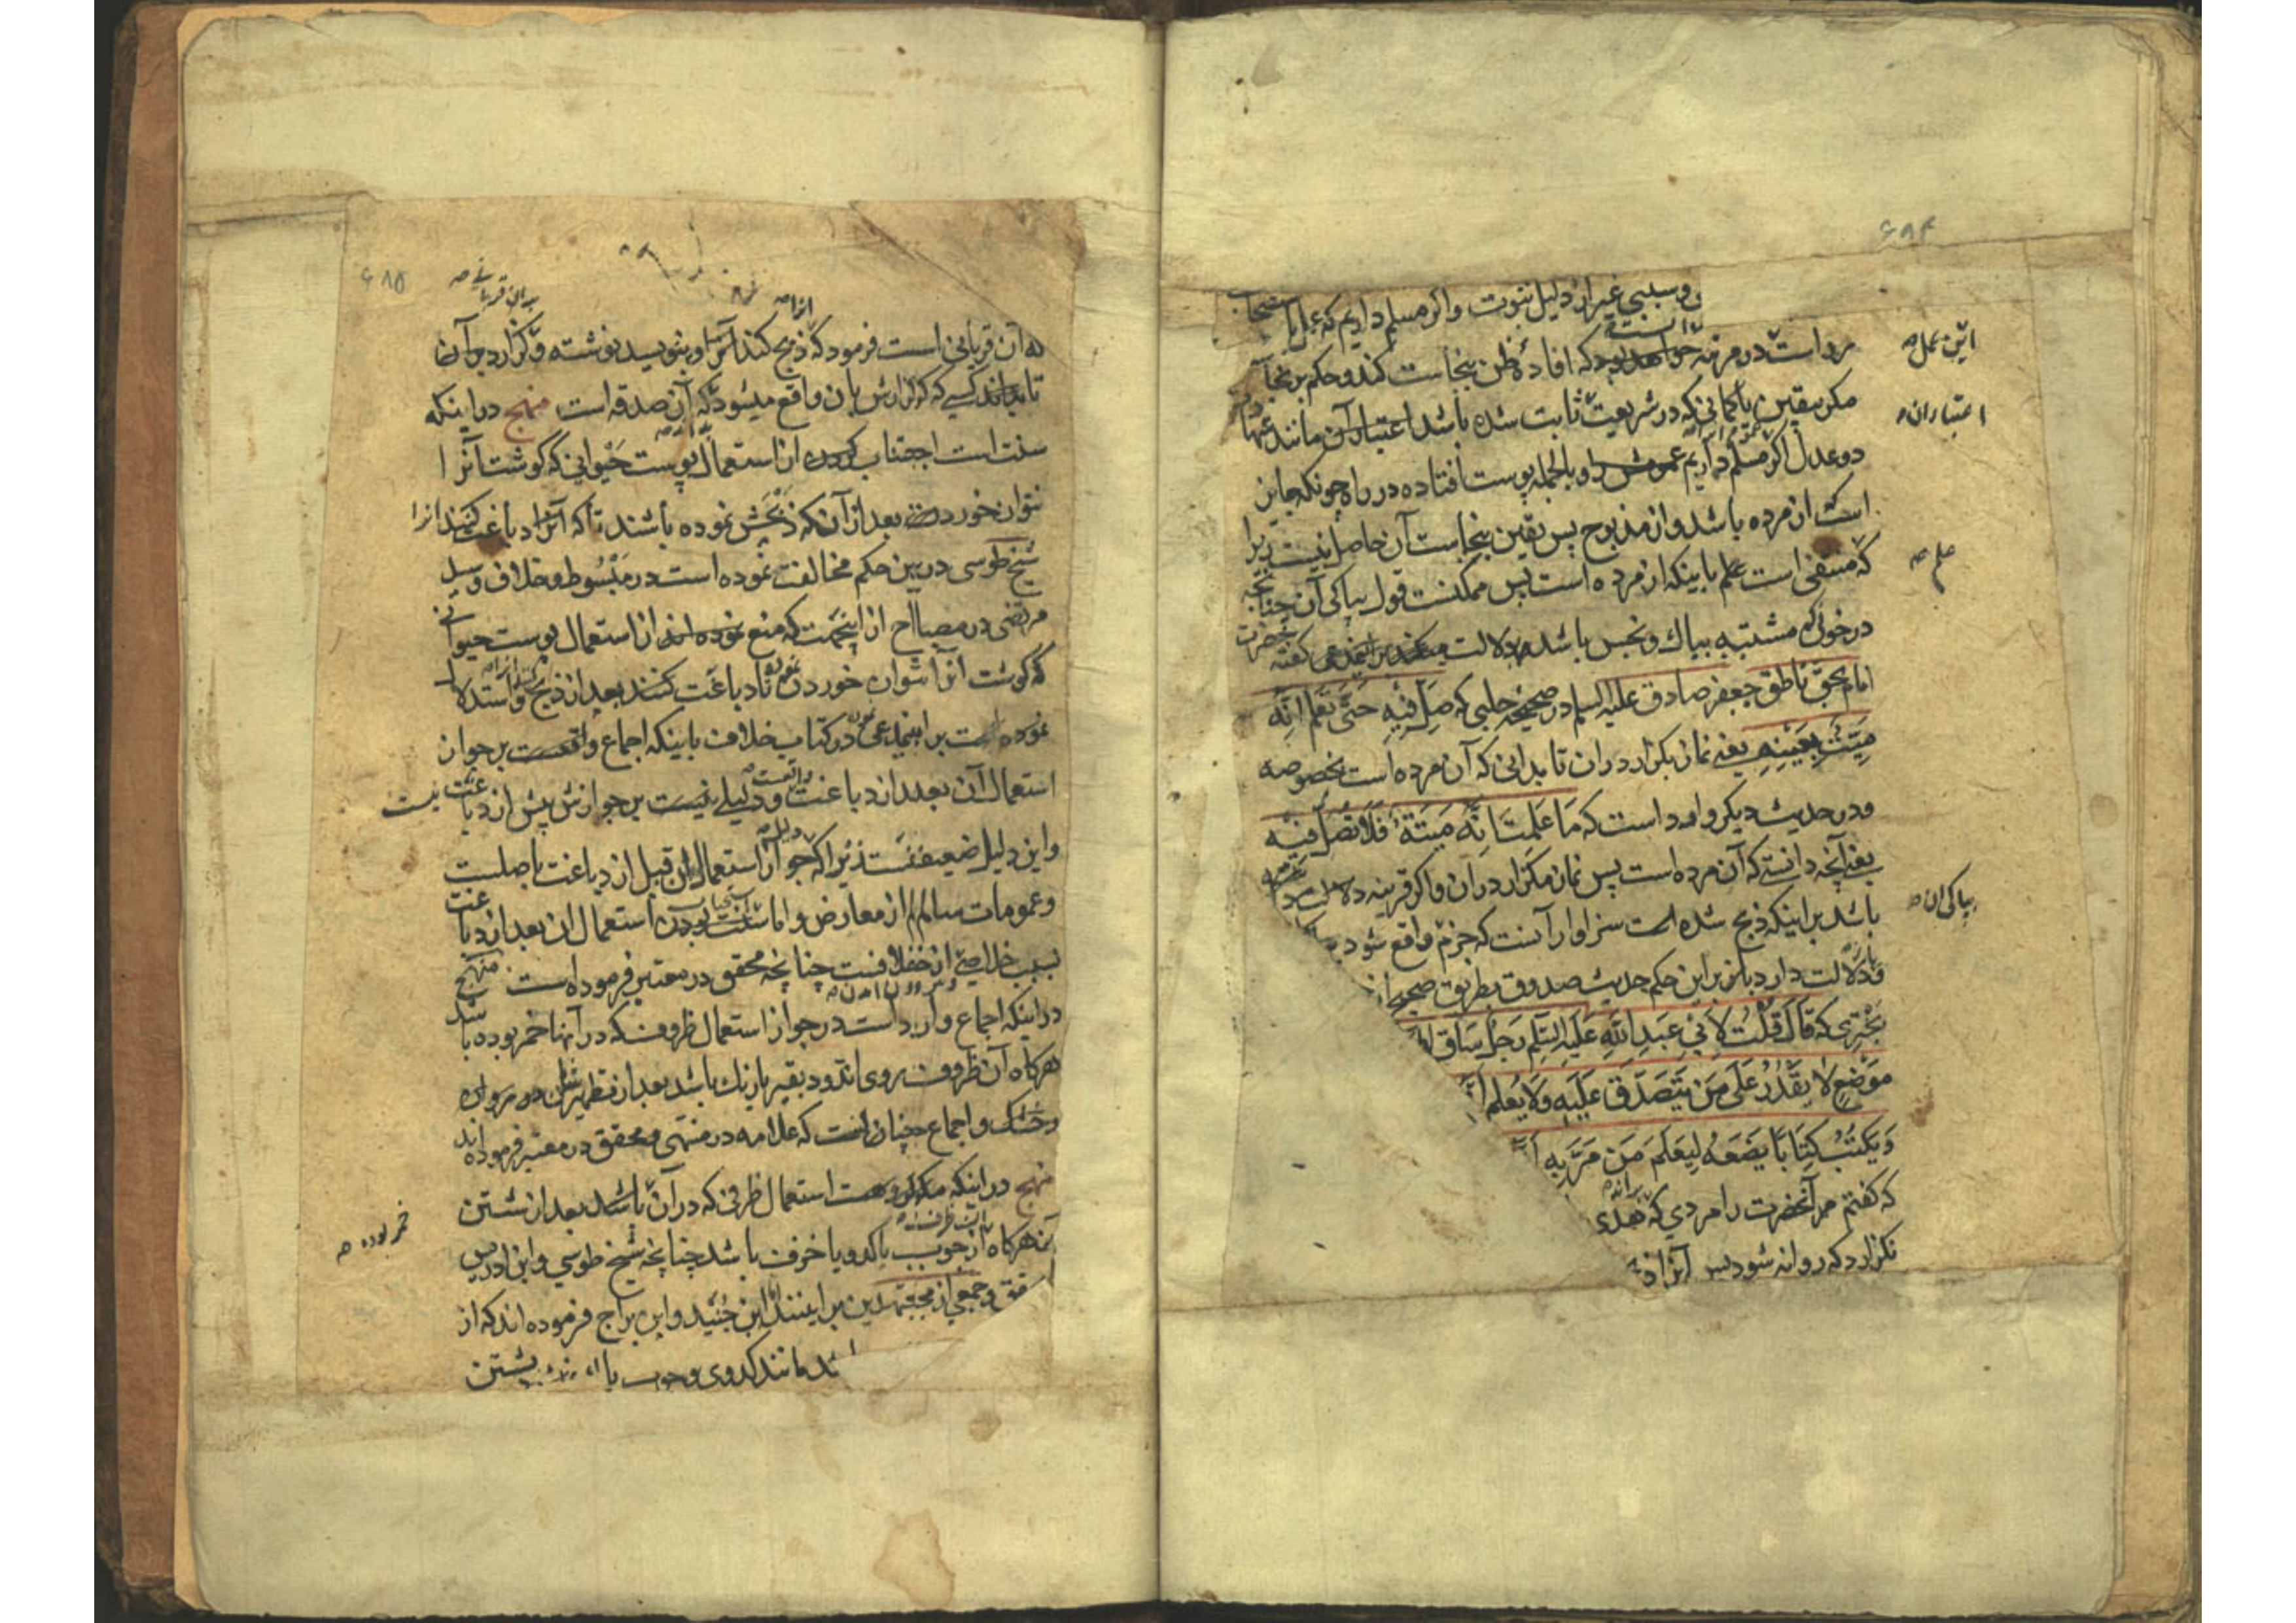 ۶۸۴
و سببی غیر از دلیل نبوت واکر مسلم داریم که عمل باستصحاب
مرد است در مرتبه خواهد بود که افادهٔ ظن بنجاست کند و حکم بر نجا
این عمل صه
مکر بیقین یا کمانی که در شریعت ثابت شده باشد اعتبار آن مانند
اعتبار ان
دو عدل اکر مسلم داریم و بالجمله پوست افتاده در راه چونکه جایز
است از مرده باشد و از مذبوح پس یقین بنجاست آن حاصل نیست زیرا
که منتفی است علم باینکه از مرده است پس ممکنست قول بپاکی آن چنانچه
علم صه
در خونی که مشتبه بپاك و نجس باشد و دلالت میکند بر اینمدعی کفته
امام بحق ناطق جعفر صادق علیه السلم در صحیحه حلبی که صَلِّ فِیهِ حَتّی تَعلَم اَنَّه
مَیتَةٌ بِعَینِهِ یعنی نماز بکزار در ان تا بدانی که آن مرده است بخصوصه
و در حدیث دیکر وارد است که مَا عَلِمتَ اَنَّه مَیتَةٌ فَلَا تُصَلِّ فِیهِ
یعنی آنچه دانستی که آن مرده است پس نماز مکزار در ان و اکر قرینه دلالت
باشد بر اینکه ذبح شده است سزاوار آنست که جزم واقع شود
بپاکی ان صه
و دلالت دارد باز بر این حکم حدیث صدوق بطریق صحیح از
بختری که قَالَ قُلتُ لِاَبِی عَبدِ اللّهِ عَلَیهِ السَّلم رَجُلٌ سَاقَ
مَوضِعٍ لَا یَقدِرُ عَلَی مَن یَتَصَدَّق عَلَیهِ وَلَا یُعلِم
وَ یَکتُبُ کِتَابًا یَضَعَهُ لِیَعلَمَ مَن مَرَّ بِهِ
که کفتم مر آنحضرت را مردی که هدی
نکزارد که روانه شود پس آنرا
۶۸۵
برای قربانی صه
انرا صه
که آن قربانی است فرمود که ذبح کند آنرا و بنویسد نوشته و بکزارد بر آن
تا بداند کسی که کزارش بان واقع میشود که آن صدقه است منهج در اینکه
سنت است اجتناب کردن از استعمال پوست حیوانی که کوشت آنرا
نتوان خوردن بعد از آن که ذبحش نموده باشند تا که آنرا دباغت کنند
شیخ طوسی در بین حکم مخالفت نموده است در مبسوط و خلاف و سید
مرتضی در مصباح از اینجهت که منع نموده اند از استعمال پوست حیوانی
که کوشت انرا نتوان خوردن تا دباغت کنند بعد از ذبح و استدلال
نموده است بر اینمدعی در کتاب خلاف باینکه اجماع واقعست بر جواز
استعمال آن بعد از دباغت و دلیلی نیست بر جوازش پیش از دباغت
و این دلیل ضعیفست زیرا که جواز استعمال ان قبل از دباغت باصلست
و عمومات سالم از معارض و اما سنت بودن استعمال ان بعد از دباغت
بسبب خلاصی از خلافست چنانچه محقق در معتبر فرموده است منهج
در اینکه اجماع وارد است در جواز استعمال ظروف که در آنها خمر بوده باشد
هرکاه آن ظروف روی اندود بقیر یا رنك باشد بعد از تطهیر
و خشك و اجماع چنان است که علامه در منتهی و محقق در معتبر فرموده اند
منهج در اینکه مکروهست استعمال ظرفی که در آن باشد بعد از شستن
خمر بوده صه
هرکاه آن از چوب یا کدو یا خزف باشد چنانچه شیخ طوسی و ابن ادریس
و جمعی از مجتهدین بر اینند و ابن جنید و ابن براج فرموده اند که از
مانند کدوی و چوب یا بشستن